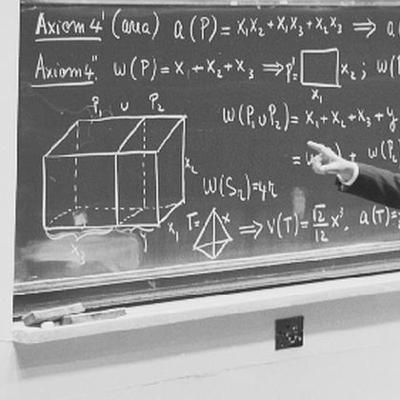 Axiom 4' (area) a(P) = x₁x₂ + x₁x₃ + x₂x₃ ⇒ a
Axiom 4'' w(P) = x₁ + x₂ + x₃ ⇒ P'= x₂ ; w(P
x₁
P₁ ∪ P₂
w(P₁∪P₂) = x₁ + x₂ + x₃ + y
= + w(P₂
x₂
w(S₂) = 4r
x₁ T = x ⇒ v(T) = √2/12 x³. a(T) =
x₃ y